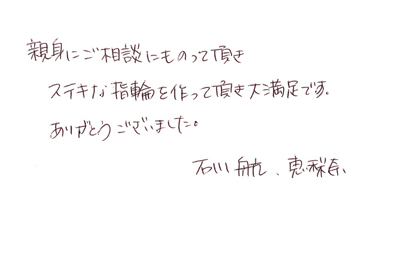 親身にご相談にものって頂き
ステキな指輪を作って頂き大満足です。
ありがとうございました。
石川 航、恵梨奈